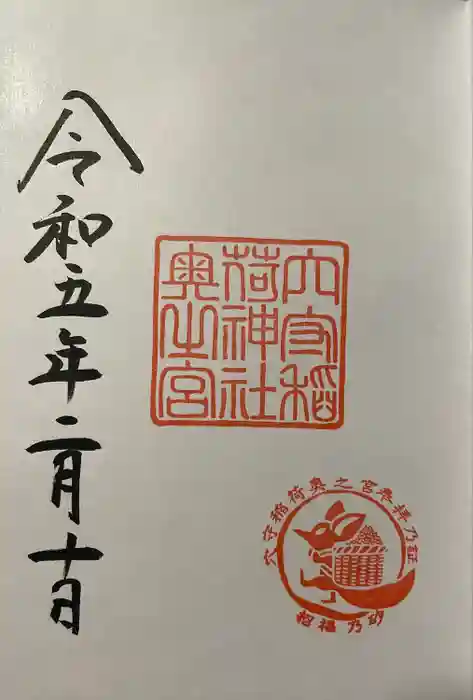 穴守稲
荷神社
奥之宮
穴守稲荷奥之宮参拝乃証
招福乃砂
令和五年二月十日